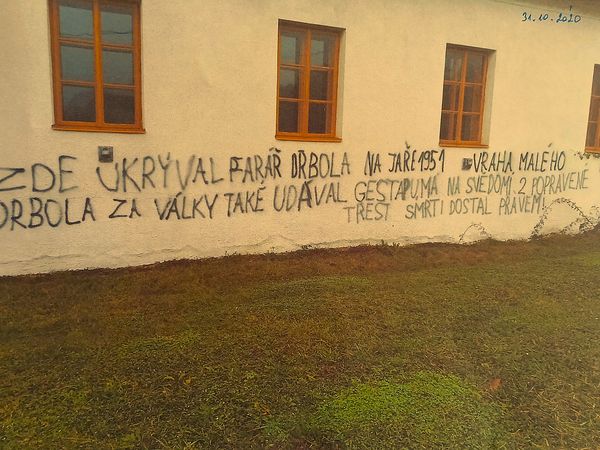 31.10.2020
ZDE UKRÝVAL FARÁŘ DRBOLA NA JAŘE 1951 VRAHA MALÉHO
DRBOLA ZA VÁLKY TAKÉ UDÁVAL GESTAPU, MÁ NA SVĚDOMÍ 2 POPRAVENÉ
TREST SMRTI DOSTAL PRÁVEM!